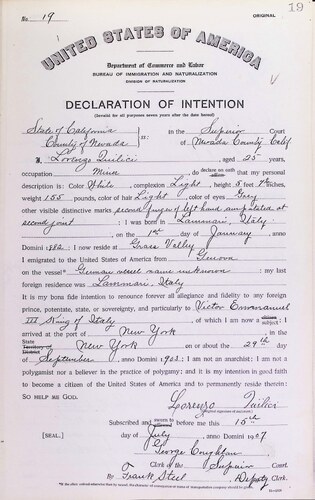 19
No. 19
ORIGINAL
UNITED STATES OF AMERICA
Department of Commerce and Labor
BUREAU OF IMMIGRATION AND NATURALIZATION
DIVISION OF NATURALIZATION
DECLARATION OF INTENTION
(Invalid for all purposes seven years after the date hereof)
State of California
County of Nevada ss: In the Superior Court
of Nevada County, Calif.
I, Lorenzo Quilici, aged 25 years,
occupation Miner, do declare on oath that my personal
description is: Color White, complexion Light, height 5 feet inches,
weight 155 pounds, color of hair Light, color of eyes Grey
other visible distinctive marks second finger of left hand amputated at
second joint
I was born in Lammari, Italy
, on the 1st day of January, anno
Domini 1882. I now reside at Grass Valley
I emigrated to the United States of America from Genova
on the vessel* German vessel name unknown; my last
foreign residence was Lammari, Italy
It is my bona fide intention to renounce forever all allegiance and fidelity to any foreign
prince, potentate, state, or sovereignty, and particularly to Victor Emmanuel
III King of Italy, of which I am now a subject; I
arrived at the port of New York, in the
State
Territory
District of New York on or about the 29th day
of September, anno Domini 1903; I am not an anarchist; I am not a
polygamist nor a believer in the practice of polygamy; and it is my intention in good faith
to become a citizen of the United States of America and to permanently reside therein:
SO HELP ME GOD.
Lorenzo Quilici
(Original signature of declarant)
Subscribed and sworn to before me this 15th
[SEAL.] day of July, anno Domini 1907
George
Clerk of the Superior Court.
By Frank Steel, Deputy Clerk.